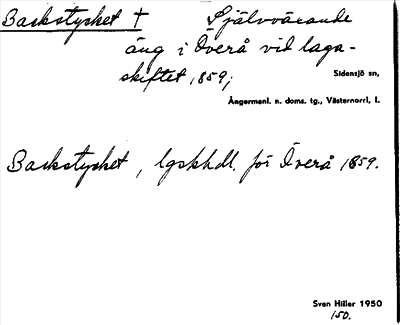 Backstycket † Självvärande
äng i Överå vid laga-
skiftet, 1859;
Sidensjö sn,
Ångermanl. n. doms. tg., Västernorrl. l.
Backstycket, lgskhdl. för Överå 1859.
Sven Hiller 1950
150.